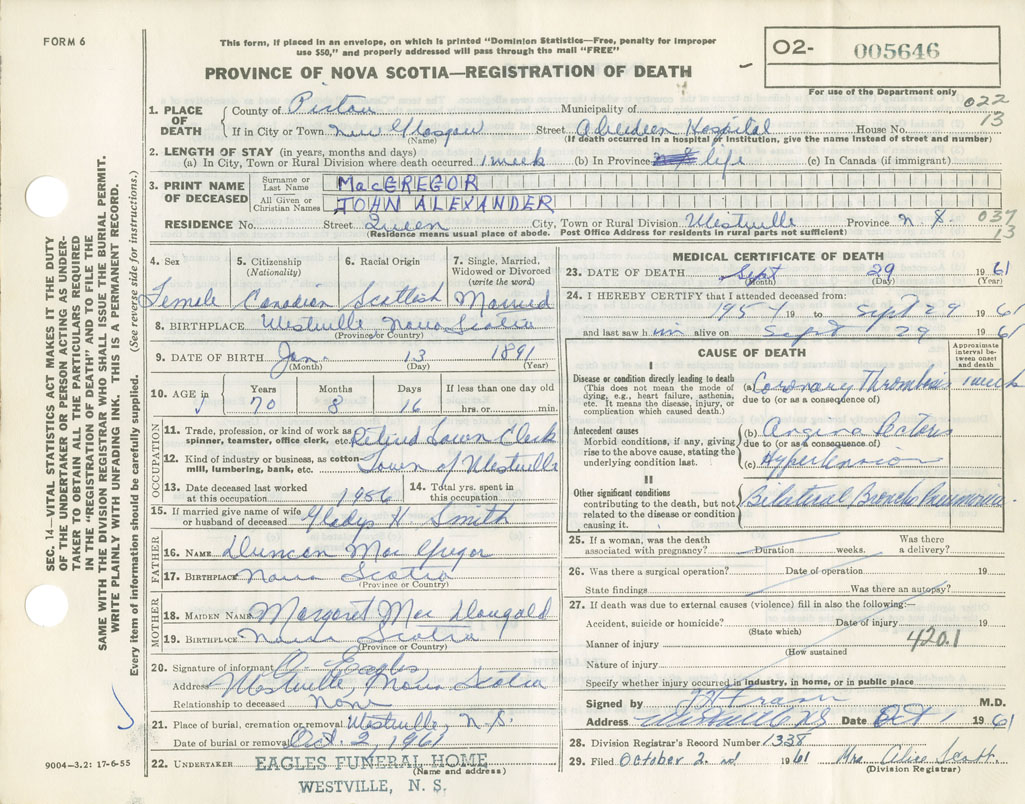 FORM 6
This form, if placed in an envelope, on which is printed "Dominion Statistics—Free, penalty for improper
use $50," and properly addressed will pass through the mail "FREE"
PROVINCE OF NOVA SCOTIA—REGISTRATION OF DEATH
O2- 005646
For use of the Department only
022
13
SEC. 14—VITAL STATISTICS ACT MAKES IT THE DUTY
OF THE UNDERTAKER OR PERSON ACTING AS UNDER-
TAKER TO OBTAIN ALL THE PARTICULARS REQUIRED
IN THE "REGISTRATION OF DEATH" AND TO FILE THE
SAME WITH THE DIVISION REGISTRAR WHO SHALL ISSUE THE BURIAL PERMIT.
WRITE PLAINLY WITH UNFADING INK. THIS IS A PERMANENT RECORD.
Every item of information should be carefully supplied. (See reverse side for instructions.)
1. PLACE OF DEATH County of Pictou Municipality of
If in City or Town New Glasgow Street Aberdeen Hospital House No.
(Name) (If death occurred in a hospital or institution, give the name instead of street and number)
2. LENGTH OF STAY (in years, months and days)
(a) In City, Town or Rural Division where death occurred 1 week (b) In Province life (c) In Canada (if immigrant)
3. PRINT NAME OF DECEASED Surname or Last Name MacGREGOR
All Given or Christian Names JOHN ALEXANDER
RESIDENCE No. Street Queen City, Town or Rural Division Westville Province N S
037
13
(Residence means usual place of abode. Post Office Address for residents in rural parts not sufficient)
4. Sex 5. Citizenship (Nationality) 6. Racial Origin 7. Single, Married, Widowed or Divorced (write the word)
Female Canadian Scottish Married
8. BIRTHPLACE Westville Nova Scotia
(Province or Country)
9. DATE OF BIRTH Jan. 13 1891
(Month) (Day) (Year)
10. AGE in Years Months Days If less than one day old
70 8 16 hrs. or min.
OCCUPATION
11. Trade, profession, or kind of work as
spinner, teamster, office clerk, etc. Retired Town Clerk
12. Kind of industry or business, as cotton-
mill, lumbering, bank, etc. Town of Westville
13. Date deceased last worked at this occupation 1956 14. Total yrs. spent in this occupation
15. If married give name of wife
or husband of deceased Gladys H. Smith
FATHER
16. NAME Duncan Mac Gregor
17. BIRTHPLACE Nova Scotia
(Province or Country)
MOTHER
18. MAIDEN NAME Margaret Mac Dougald
19. BIRTHPLACE Nova Scotia
(Province or Country)
20. Signature of informant O. Eagles
Address Westville, Nova Scotia
Relationship to deceased None
21. Place of burial, cremation or removal Westville, N. S.
Date of burial or removal Oct. 2, 1961
22. UNDERTAKER EAGLES FUNERAL HOME
(Name and address)
WESTVILLE, N. S.
9004—3.2: 17-6-55
MEDICAL CERTIFICATE OF DEATH
23. DATE OF DEATH Sept 29 1961
(Month) (Day) (Year)
24. I HEREBY CERTIFY that I attended deceased from:
1954 19 to Sept 29 1961
and last saw h im alive on Sept 29 1961
CAUSE OF DEATH
Approximate interval between onset and death
I
Disease or condition directly leading to death
(This does not mean the mode of
dying, e.g., heart failure, asthenia,
etc. It means the disease, injury, or
complication which caused death.)
(a) Coronary Thrombosis 1 week
due to (or as a consequence of)
Antecedent causes
Morbid conditions, if any, giving
rise to the above cause, stating the
underlying condition last.
(b) Angina Pectoris
due to (or as a consequence of)
(c) Hypertension
II
Other significant conditions
contributing to the death, but not
related to the disease or condition
causing it.
Bilateral Broncho Pneumonia
25. If a woman, was the death
associated with pregnancy? Duration weeks. Was there a delivery?
26. Was there a surgical operation? Date of operation 19
State findings Was there an autopsy?
27. If death was due to external causes (violence) fill in also the following:—
Accident, suicide or homicide? Date of injury 19
(State which)
Manner of injury 420.1
(How sustained)
Nature of injury
Specify whether injury occurred in industry, in home, or in public place
Signed by M.D.
Address Westville NS Date Oct 1 1961
28. Division Registrar's Record Number 1338
29. Filed October 2 nd 1961 Mrs Alice Scott
(Division Registrar)